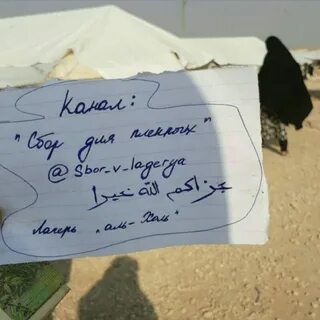 Канал:
"Сбор для пленных"
@Sbor_v_lagerya
جزاكم الله خيرا
Лагерь "аль-Холь"